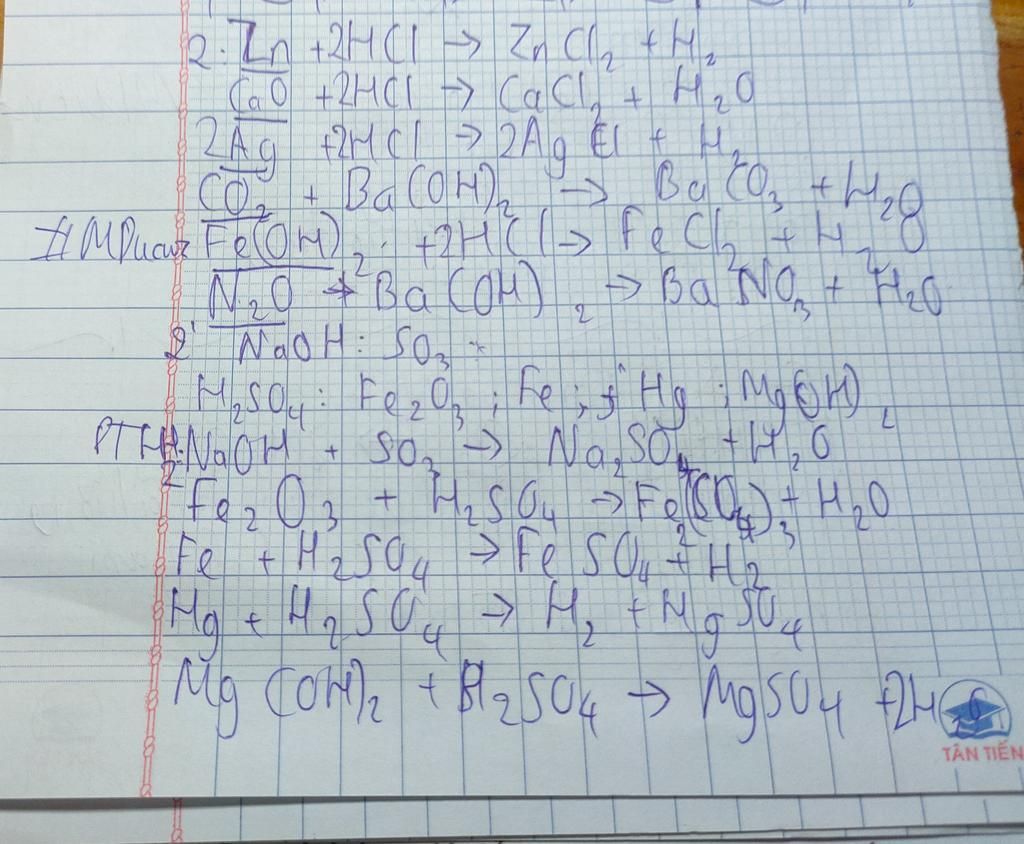 2. Zn + 2HCl → ZnCl₂ + H₂
CaO + 2HCl → CaCl₂ + H₂O
2Ag + 2HCl → 2AgCl + H₂
CO₂ + Ba(OH)₂ → BaCO₃ + H₂O
Fe(OH)₂ + 2HCl → FeCl₂ + H₂O
N₂O + Ba(OH)₂ → BaNO₃ + H₂O
2' NaOH: SO₃
H₂SO₄: Fe₂O₃; Fe; Hg; Mg(OH)₂
PTHH: 2NaOH + SO₃ → Na₂SO₄ + H₂O
Fe₂O₃ + H₂SO₄ → Fe₂(SO₄)₃ + H₂O
Fe + H₂SO₄ → FeSO₄ + H₂
Hg + H₂SO₄ → H₂ + HgSO₄
Mg(OH)₂ + H₂SO₄ → MgSO₄ + 2H₂O
TÂN TIẾN